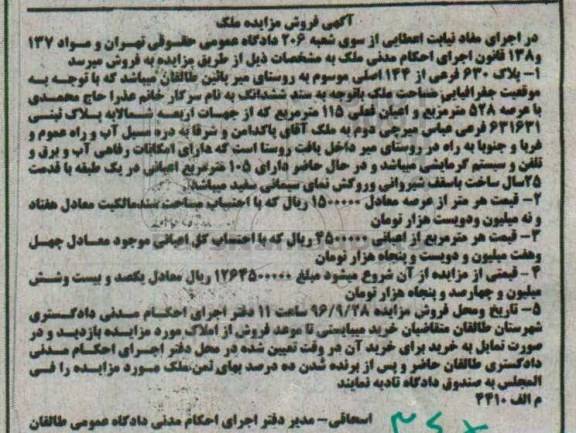 آگهی فروش مزایده ملک
در اجرای مفاد نیابت اعطایی از سوی شعبه ۲۰۶ دادگاه عمومی حقوقی تهران و مواد ۱۳۷
و۱۳۸ قانون اجرای احکام مدنی ملک به مشخصات ذیل از طریق مزایده به فروش میرسد
۱- پلاک ۶۳۰ فرعی از ۱۳۴ اصلی موسوم به روستای میر پائین طالقان میباشد که با توجه به
موقعیت جغرافیایی مساحت ملک باتوجه به سند ششدانگ به نام سرکار خانم عذرا حاج محمدی
با عرصه ۵۲۸ مترمربع و اعیان فعلی ۱۱۵ مترمربع که از جهات اربعه شمالابه پلاک ثبتی
۶۳۱۶۳۱ فرعی عباس میرچی دوم به ملک آقای پاکدامن و شرقا به دره مسیل آب و راه عموم و
غربا و جنوبا به راه در روستای میر داخل بافت روستا است که دارای امکانات رفاهی آب و برق و
تلفن و سیستم گرمایشی میباشد و در حال حاضر دارای ۱۰۵ مترمربع اعیانی در یک طبقه با قدمت
۲۵سال ساخت باسقف شیروانی وروکش نمای سیمانی سفید میباشد
۲- قیمت هر متر از عرصه معادل ۱۵۰۰۰۰۰ ریال که با احتساب مساحت سندمالکیت معادل هفتاد
و نه میلیون ودویست هزار تومان
۳- قیمت هر مترمربع از اعیانی ۴۵۰۰۰۰۰ ریال که با احتساب کل اعیانی موجود معادل چهل
وهفت میلیون و دویست و پنجاه هزار تومان
۴- قیمتی از مزایده از آن شروع میشود مبلغ ۱۲۶۴۵۰۰۰۰۰ ریال معادل یکصد و بیست وشش
میلیون و چهارصد و پنجاه هزار تومان
۵- تاریخ ومحل فروش مزایده ۹۶/۹/۲۸ ساعت ۱۱ دفتر اجرای احکام مدنی دادگستری
شهرستان طالقان متقاضیان خرید میبایستی تا موعد فروش از املاک مورد مزایده بازدید و در
صورت تمایل به خرید برای خرید آن در وقت تعیین شده در محل دفتر اجرای احکام مدنی
دادگستری طالقان حاضر و پس از برنده شدن ده درصد بهای ثمن ملک مورد مزایده را فی
المجلس به صندوق دادگاه تادیه نمایند
م الف ۴۴۱۰
اسحاقی- مدیر دفتر اجرای احکام مدنی دادگاه عمومی طالقان